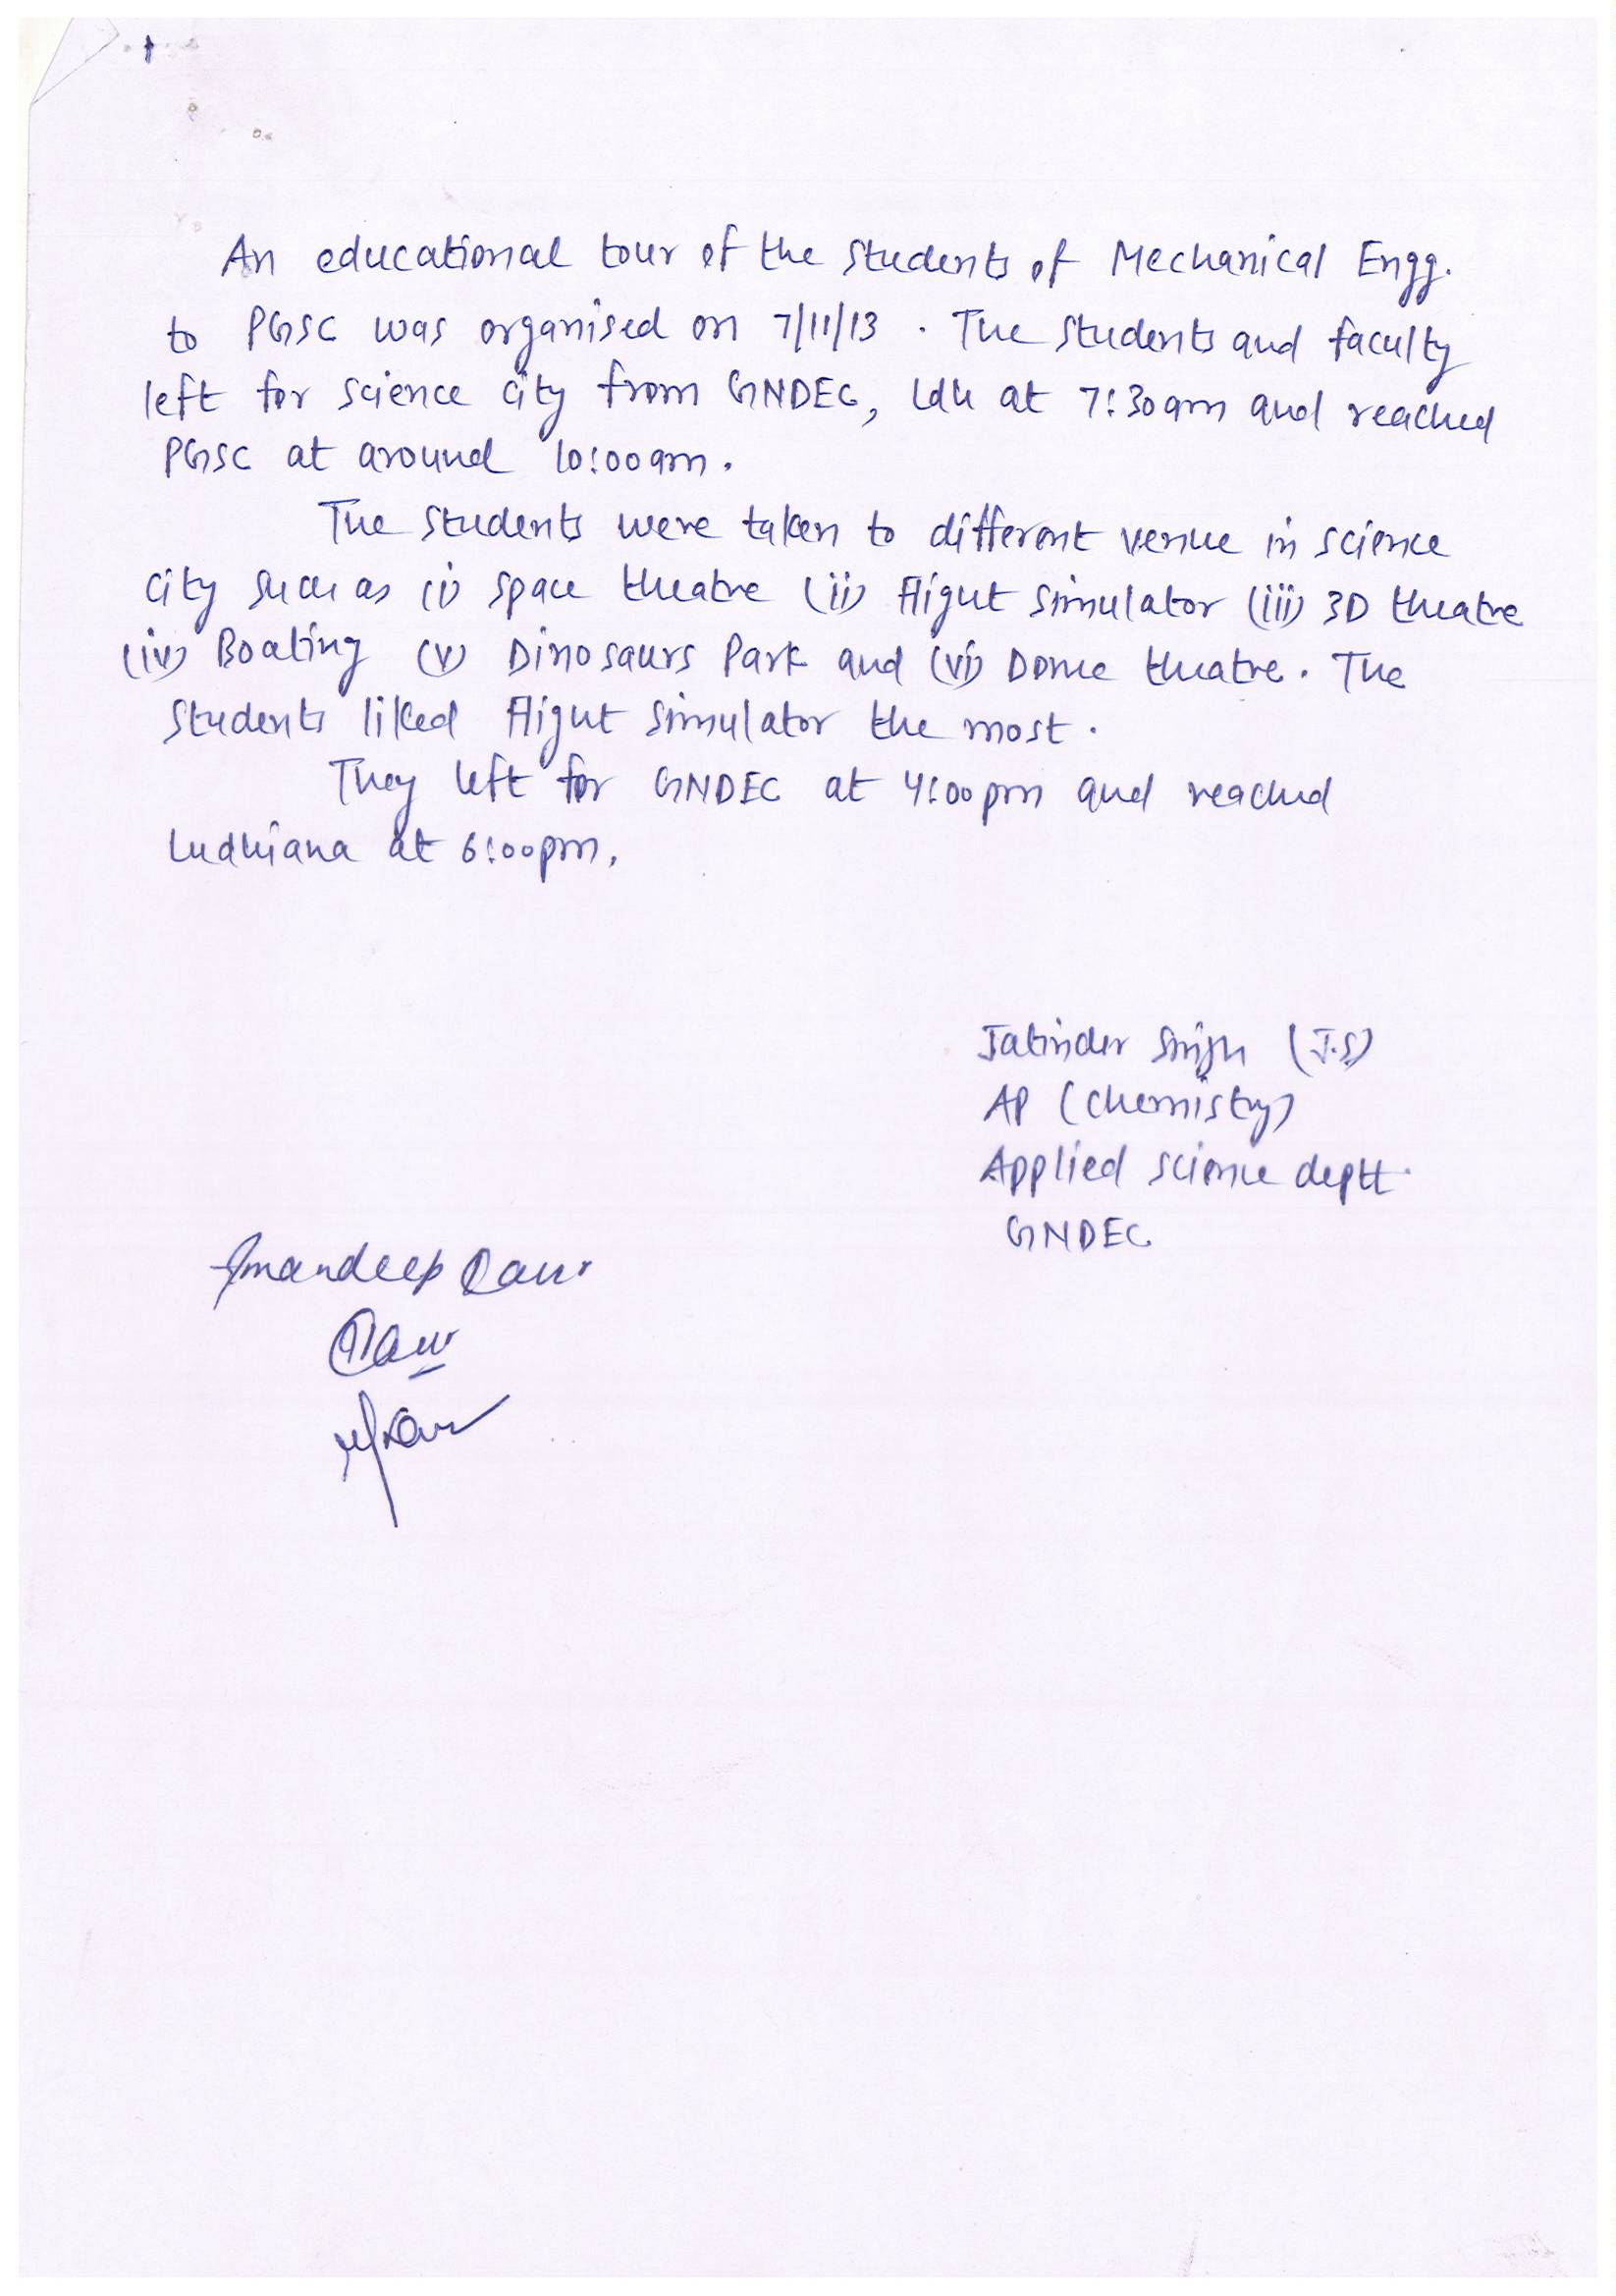 An educational tour of the students of Mechanical Engg.
to PGSC was organised on 7/11/13 . The students and faculty
left for science city from GNDEC, Ldh at 7:30am and reached
PGSC at around 10:00am.
The students were taken to different venue in science
city such as (i) space theatre (ii) Flight simulator (iii) 3D theatre
(iv) Boating (v) Dinosaurs Park and (vi) Dome theatre. The
students liked Flight simulator the most.
They left for GNDEC at 4:00pm and reached
Ludhiana at 6:00pm.
Jatinder Singh (J.S)
AP (Chemistry)
Applied science deptt.
GNDEC
Amandeep Kaur